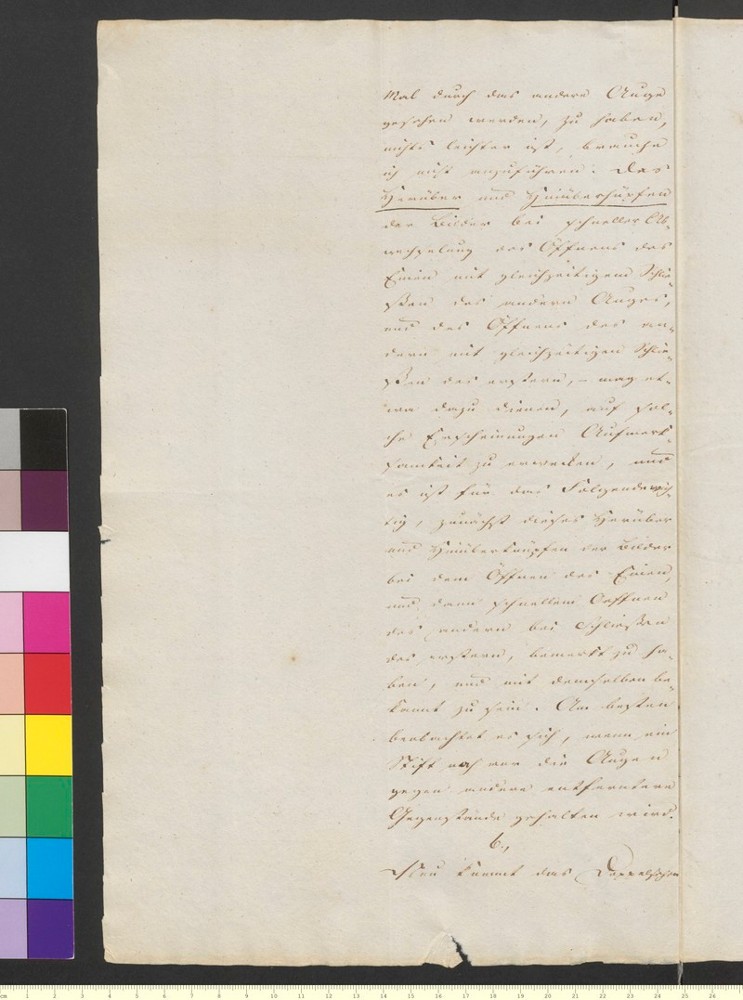 Mal durch das andere Auge
gesehen werden, zu haben,
nichts leichter ist, brauche
ich nicht anzuführen. Das
Herüber und Hinüberhüpfen
der Bilder bei schneller Ab-
wechselung des Öffnens des
Einen mit gleichzeitigem Schlie-
ßen des andern Auges,
und des Öffnens des an-
dern mit gleichzeitigen Schlie-
ßen des erstern, – mag et-
wa dazu dienen, auf sol-
che Erscheinungen Aufmerk-
samkeit zu erwecken, und
es ist für das Folgende wich-
tig, zunächst dieses Herüber
und Hinüberhüpfen der Bilder
bei dem Öffnen des Einen,
und dann schnellem Oeffnen
des andern bei Schließen
des erstern, bemerkt zu ha-
ben, und mit demselben be-
kannt zu sein. Am besten
beobachtet es sich, wenn ein
Stift nah vor die Augen
gegen andere entferntere
Gegenstände gehalten wird.
6.,
Neu kommt das Doppeltsehen